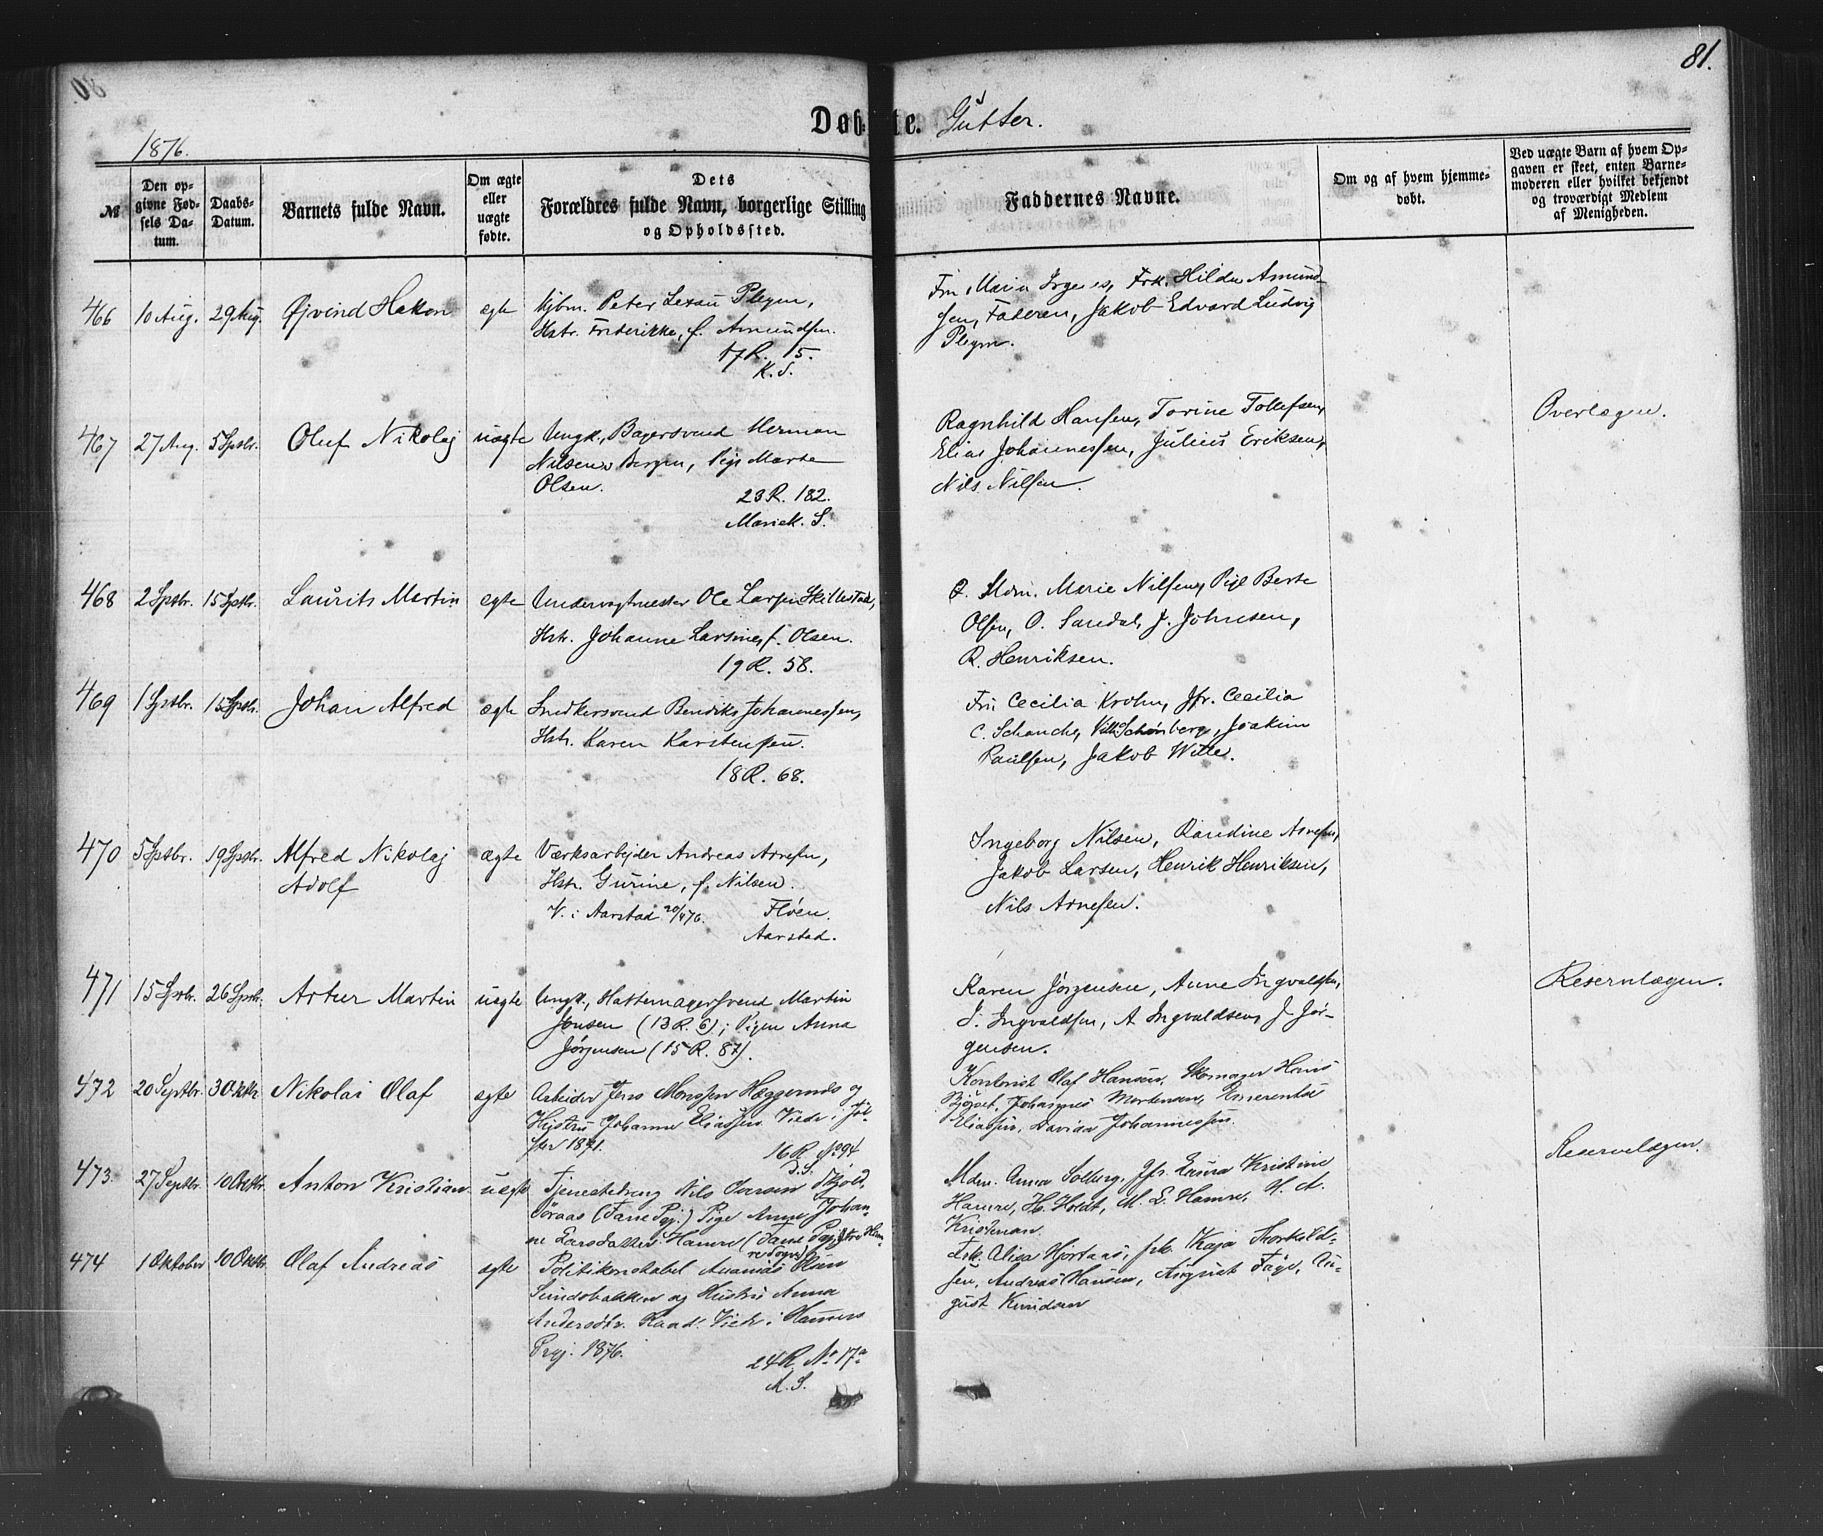 81.
Døbte. Gutter.
1876.
№
Den opgivne Fødsels Datum.
Daabs-Datum.
Barnets fulde Navn.
Om ægte eller uægte fødte.
Dets Forældres fulde Navn, borgerlige Stilling og Opholdssted.
Faddernes Navne.
Om og af hvem hjemmedøbt.
Ved uægte Barn af hvem Opgaven er skeet, enten Barnemoderen eller hvilket bekjendt og troværdigt Medlem af Menigheden.
466 10 Aug. 29 Aug. Øjvind Hakon egte Kjbm. Peter Lexau Plegm,
Hstr. Frederikke, f. Amundsen.
17 R. 15.
K. S.
Fru Maria Frk. Hilda Amund-
sen, Faderen, Jakob Edvard Ludvig
Plegm.
467 27 Aug. 5 Sptbr. Oluf Nikolaj uægte Ungk., Bagersvend Herman
Nilsen, Bergen, Pige Marte
Olsen.
23 R. 182.
Mariek. S.
Ragnhild Hansen, Torine Tollefsen,
Elias Johannessen, Julius Eriksen,
Nils Nilsen.
Overlægen.
468 2 Sptbr. 15 Sptbr. Laurits Martin egte Undervagtmester Ole Larsen Skillestad,
Hstr. Johanne Larsine, f. Olsen.
19 R. 58.
Mdm. Marie Nilsen, Pige Berte
Olsen, O. Sandal, J. Johnsen,
R. Henriksen.
469 1 Sptbr. 15 Sptbr. Johan Alfred ægte Snedkersvend Bendiks Johannessen,
Hstr. Karen Karstensen.
18 R. 68.
Fru Cecilia Krohn, Jfr. Cecilia
C. Schanche, Vilh. Schønberg, Joakim
Paulsen, Jakob Witte.
470 5 Sptbr. 19 Sptbr. Alfred Nikolaj ægte Værksarbejder Andreas Arnesen,
Adolf Hstr. Gurine, f. Nilsen.
V. i Aarstad 20/4 76. Fløen.
Aarstad.
Ingeborg Nilsen, Randine Arnesen,
Jakob Larsen, Henrik Henriksen,
Nils Arnesen.
471 15 Sptbr. 26 Sptbr. Artur Martin uegte Ungk., Hattemagersvend Martin
Jonsen (13 R. 6); Pigen Anna
Jørgensen (15 R. 87).
Karen Jørgensen, Anne Ingvaldsen,
I. Ingvaldsen, A Ingvaldsen, J Jør-
gensen.
Reservelægen.
472 20 Septbr. 3 Oktbr. Nikolai Olaf egte Arbeider Jens Monssen Heggernds og
Hustru Johanne Eliassen Viede i Jöl-
ster 1871.
16 R. No 94
D. S.
Kontorist Olaf Hansen, Skomager Hans
Johannes Mortensen, Emerentse
Eliassen, Davida Johannessen.
473. 27 Septbr. 10 Oktbr. Anton Kristian uegte Tjenestedreng Nils Iversen
(Fane Pgj.) Pige Anne Johan-
ne Larsdatter Hamre (Fane Pgj.
Mdm. Anna Solberg, Jfr. Laura Kristine
Hamre, H. Holdt, M. E. Hamre, H. A.
Kristensen
Reservelægen.
474 1 Oktober 10 Oktbr. Olaf Andreas egte Politikonstabel Ananias Olsen
Sundsbakken og Hustru Anna
Andersdtr. Raad. Viede i Hammers
Prgj. 1876.
24 R. No 17a
M. S.
Frk. Alisa Hjortaas, frk. Kaja Thorkild-
sen, Andreas Hansen, August Fage, Au-
gust Knudsen